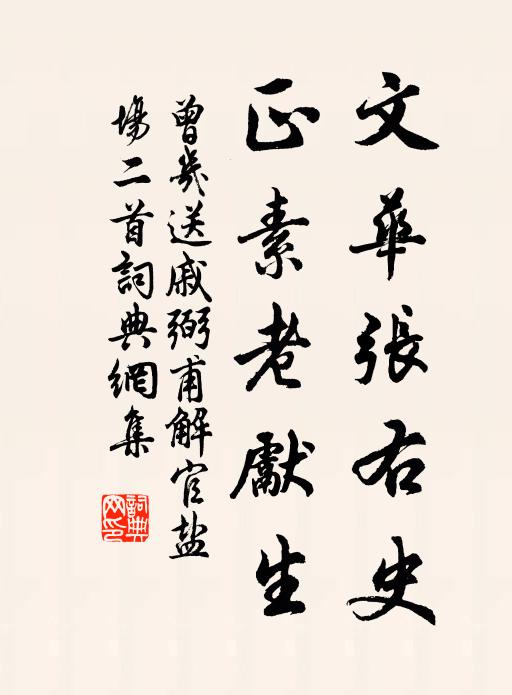 文華張右史
正素老獻生
曾幾送戚弼甫解官盐
場二首詞典網集
詞典網印